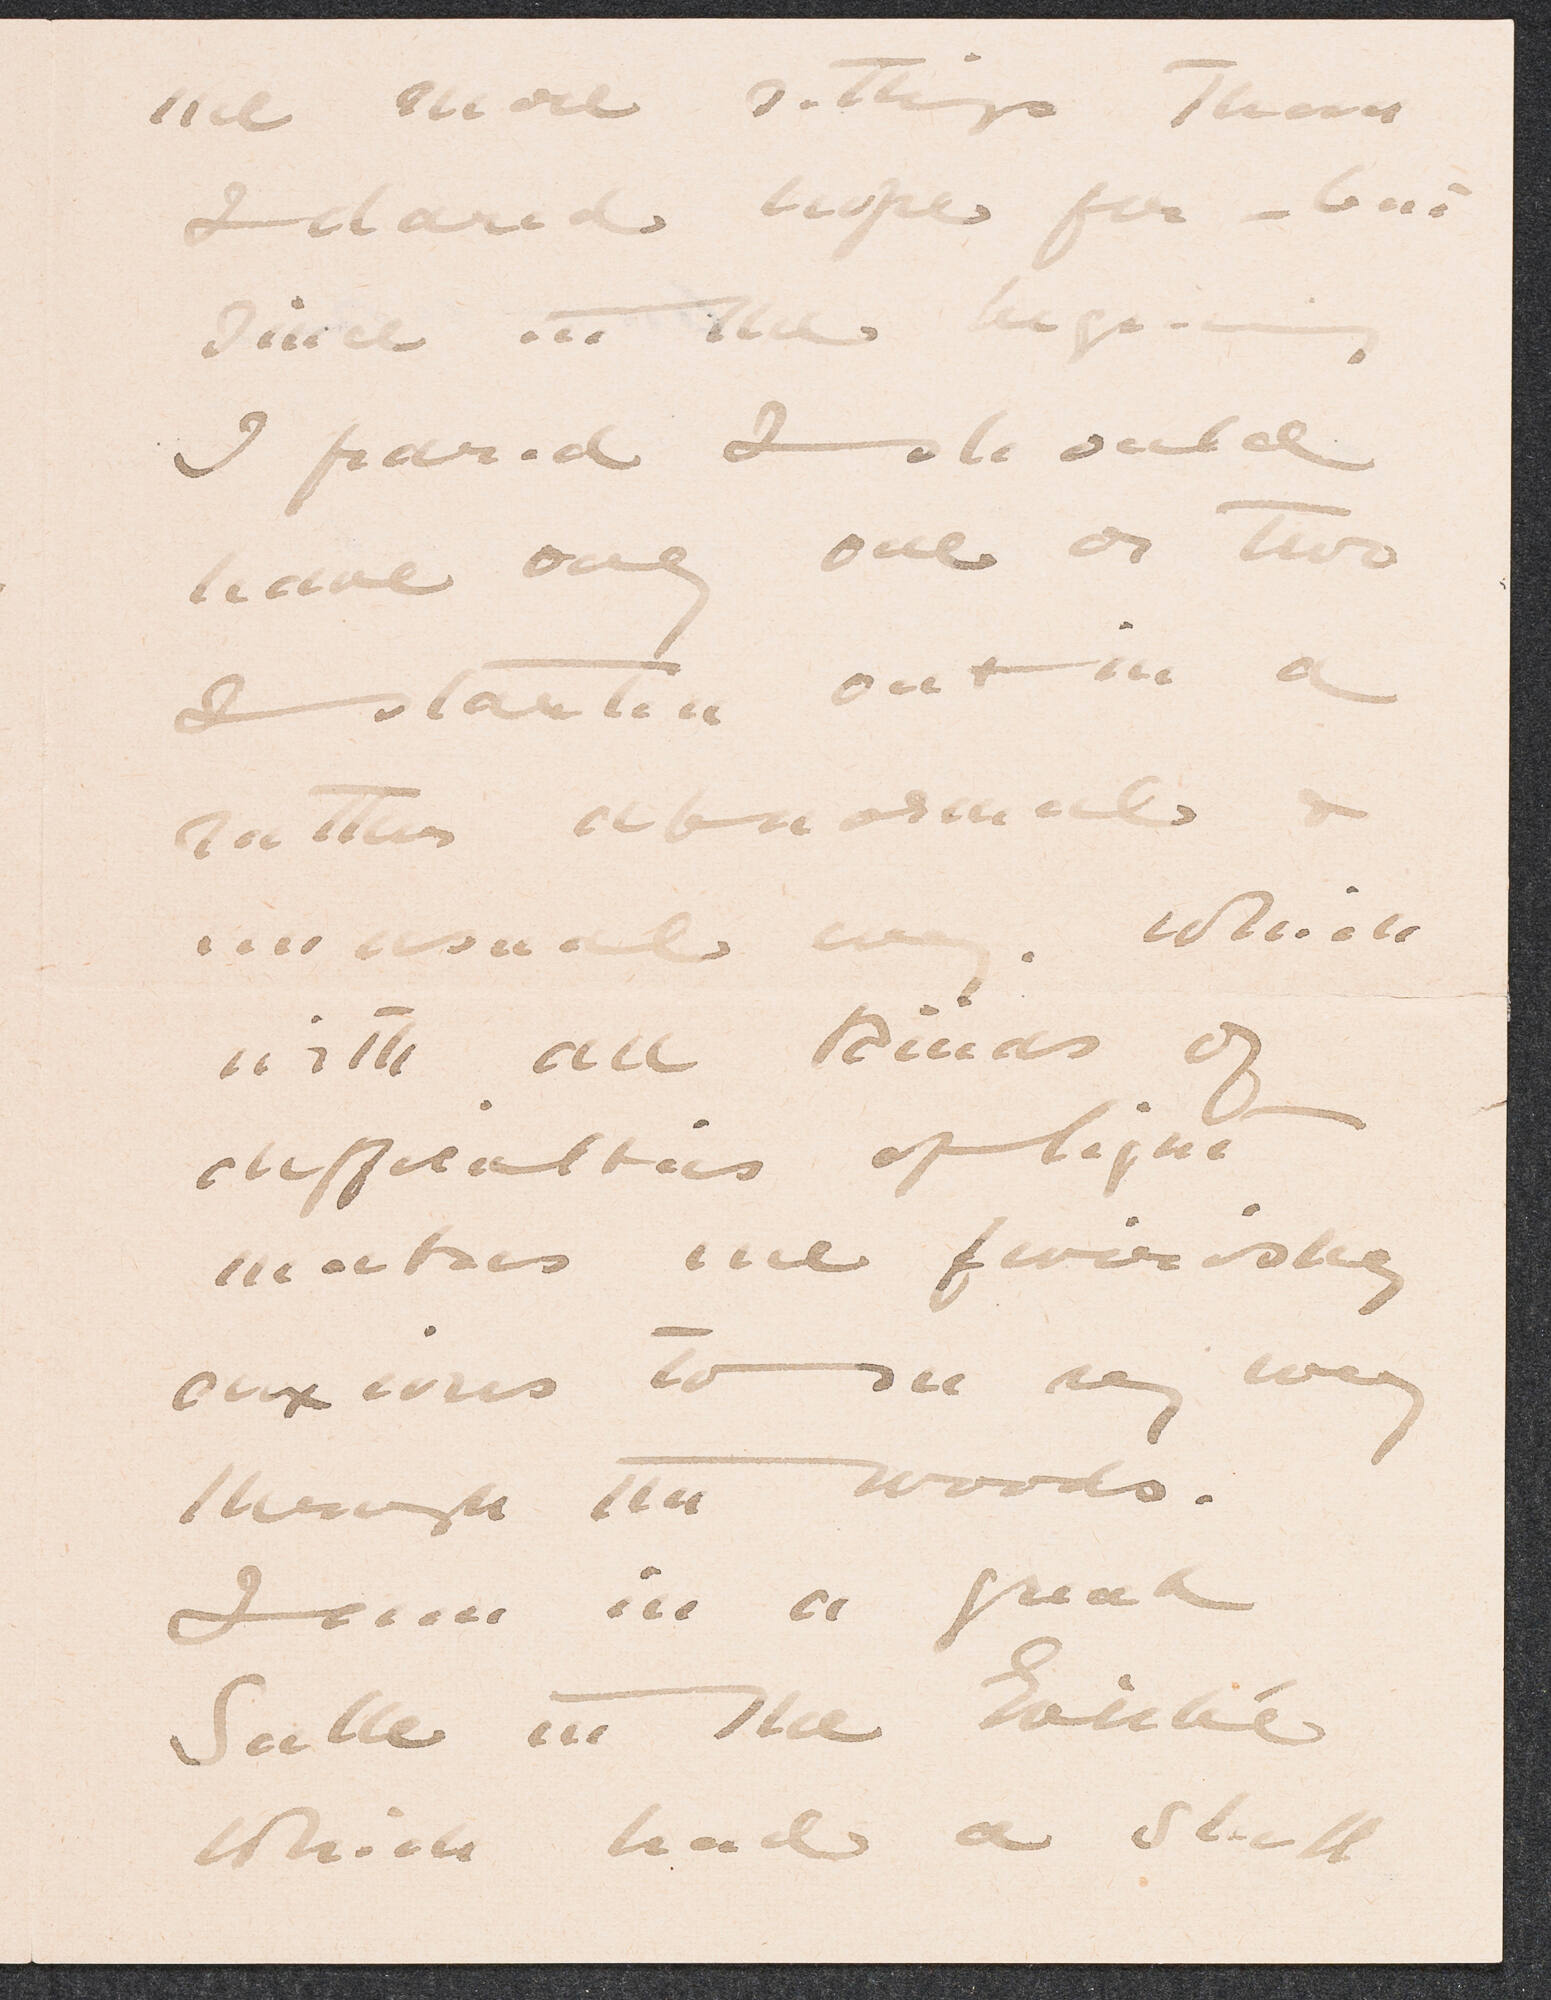 me more sittings than
I dared hope for – but
since in the beginning
I feared I should
have only one or two
I started out in a
rather abnormal &
unusual way. Which
with all kinds of
difficulties of light
makes me feverishly
anxious to see my way
through the woods.
I am in a great
Salle in the Evêché
Which had a shell